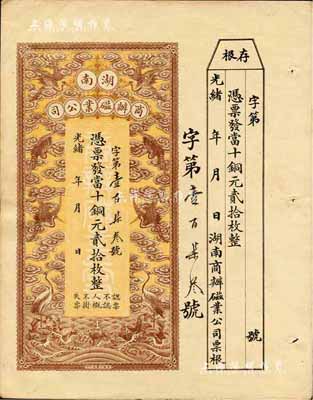 存根
字第 號
憑票發當十銅元貳拾枚整
光緒 年 月 日 湖南商辦磁業公司票根
字第壹百柒叁號
湖南
商辦磁業公司
字第壹百柒叁號
憑票發當十銅元貳拾枚整
光緒 年 月 日
認票
不認
人概
不謝
失票